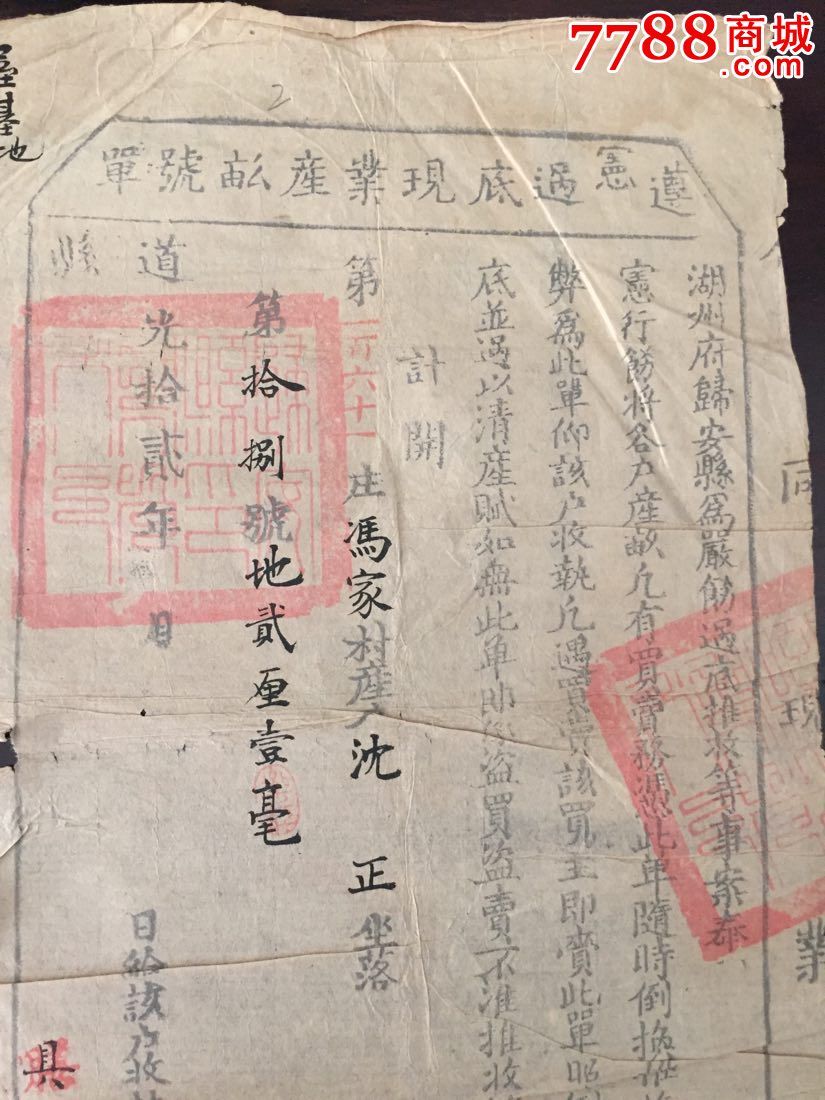 7788商城
.com
屋基地
2
遵憲過底現業產畝號單
湖州府歸安縣爲嚴飭過底推收等事案奉
憲行飭將各戶產畝凡有買賣務憑此单隨時倒換
弊爲此單仰該戶收執凡遇買賣該買主即賫此單照
底並過以清產賦如無此单即係盜買盜賣不准推收
計開
第一百六十一庄馮家村產户沈正坐落
第拾捌號地貳厘壹毫
道光拾貳年 日
日給該户收執
縣
現業
具